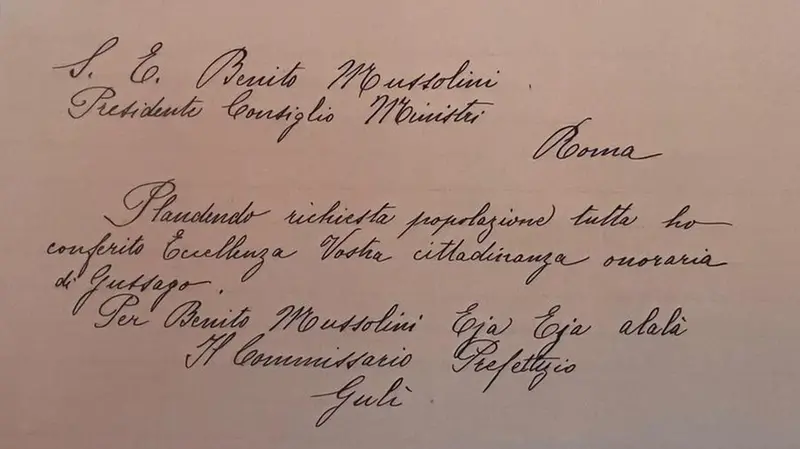 S. E. Benito Mussolini
Presidente Consiglio Ministri
Roma
Plaudendo richiesta popolazione tutta ho
conferito Eccellenza Vostra cittadinanza onoraria
di Gussago.
Per Benito Mussolini Eja Eja alalà
Il Commissario Prefettizio
Gulì